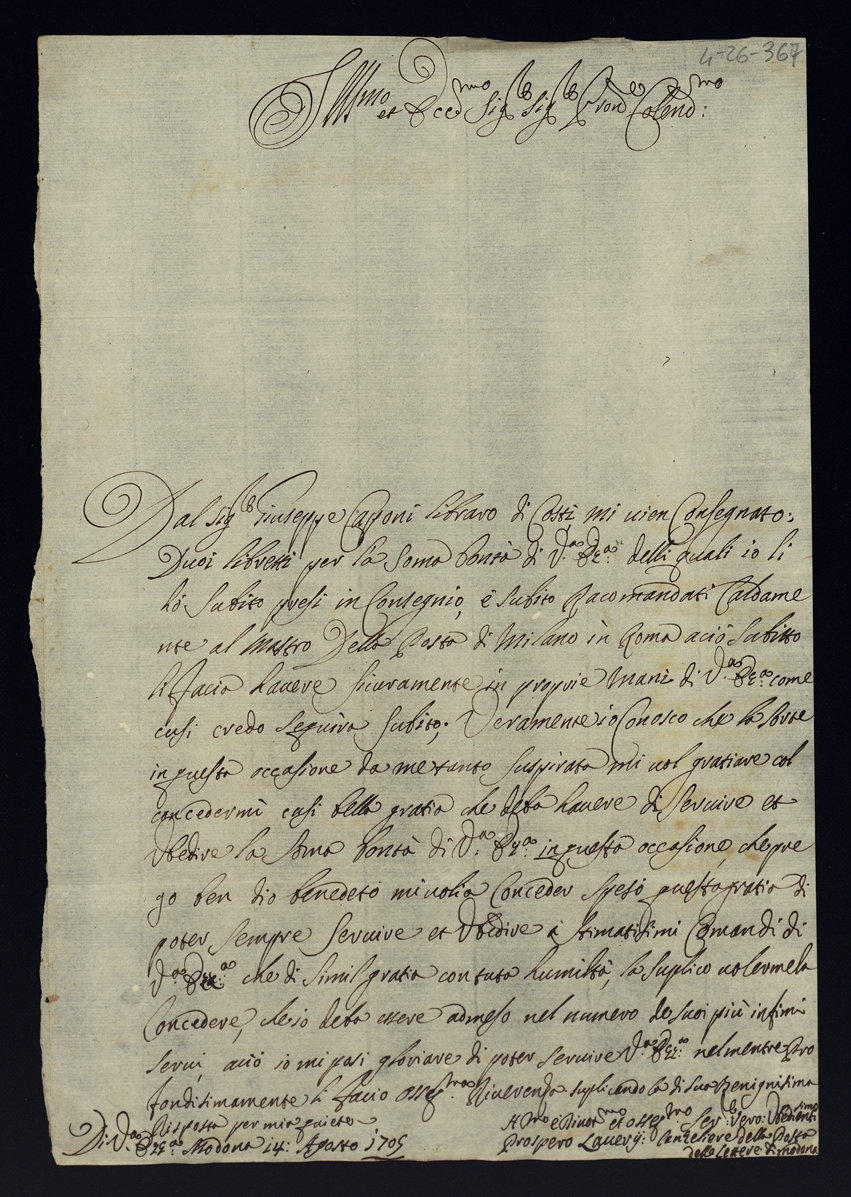 4-26-367
Ill.mo et Ecc.mo Sig.r Sig.r Pron Colend.mo:
Dal Sig.r Giuseppe Capponi libraro di Costì mi vien Consegnato:
Duoi libretti per la Soma bontà di V.a Ecc.a delli quali io li
hò Subito presi in Consegnio, è Subito Racomandati Caldame
nte al Mastro Della Posta di Milano in Roma aciò Subitto
li facia havere sicuramente in proprie Mani di V.a Ecc.a come
cusi credo seguirà subito; Veramente io Conosco che la Sorte
in questa occasione da me tanto suspirata mi vol gratiare col
concedermi cusi bella gratia che deba havere di servire et
Obedire la Soma bontà di V.a Ecc.a in questa occasione, che pre
go ben dio benedeto mi volia Conceder speso questa gratia di
poter sempre servire et Obedire à Stimatisimi Comandi di
V.a Ecc.a che di simil gratia con tuta humiltà, la suplico volermela
Concedere, che io deba essere admeso nel numero de suoi più infimi
servi, aciò io mi posi gloriare di poter servire V.a Ecc.a nel mentre Pro
fondisimamente li facio osseq.ma Riverenza suplicandola di sua Benignisima
Risposta per mia quiete
Di V.a Ecc.a Modona 14: Agosto 1705
H.mo è Divot.mo et osseq.mo Ser.r Vero: Obedientisimo
Prospero Lavery: Canzeliere della Posta
delle Lettere di Modona